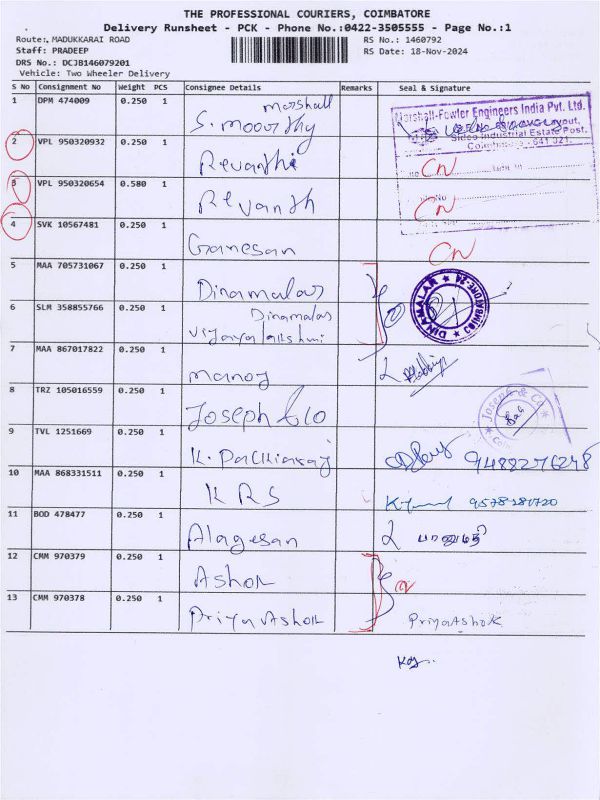 THE PROFESSIONAL COURIERS, COIMBATORE
Delivery Runsheet - PCK - Phone No.:0422-3505555 - Page No.:1
Route: MADUKKARAI ROAD RS No.: 1460792
Staff: PRADEEP RS Date: 18-Nov-2024
DRS No.: DCJB146079201
Vehicle: Two Wheeler Delivery
S No Consignment No Weight PCS Consignee Details Remarks Seal & Signature
1 DPM 474009 0.250 1 Marshall
S. Moorthy
Marshall-Fowler Engineers India Pvt. Ltd.
Sidco Industrial Estate Post,
Coimbatore - 641 021.
2 VPL 950320932 0.250 1 Revanthi CN
3 VPL 950320654 0.580 1 Revanth CN
4 SVK 10567481 0.250 1 Ganesan CN
5 MAA 705731067 0.250 1 Dinamalar
DINAMALAR COIMBATORE
6 SLM 358855766 0.250 1 Dinamalar
Vijayalakshmi
7 MAA 867017822 0.250 1 Manoj
8 TRZ 105016559 0.250 1 Joseph & Co
Joseph & Co
9 TVL 1251669 0.250 1 K. Packiaraj 9488276248
10 MAA 868331511 0.250 1 K R S
11 BOD 478477 0.250 1 Alagesan பானுமதி
12 CMM 970379 0.250 1 Ashok
13 CMM 970378 0.250 1 Priya Ashok PriyaAshok